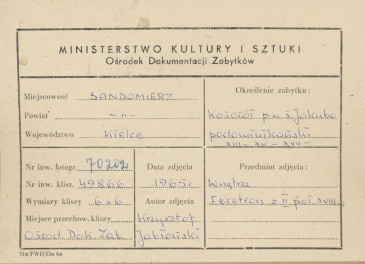 MINISTERSTWO KULTURY I SZTUKI
Ośrodek Dokumentacji Zabytków
Miejscowość SANDOMIERZ
Powiat -„-
Województwo Kielce
Określenie zabytku:
Kościół p.w. ś. Jakuba
podominikański
XIII - XV - XVII -
Nr inw. fotogr. 70202
Nr inw. klisz. 49866
Wymiary kliszy 6x6
Miejsce przechow. kliszy
Ośrod. Dok. Zab.
Data zdjęcia
1965r.
Autor zdjęcia
Krzysztof
Jabłoński
Przedmiot zdjęcia:
Wnętrze
Feretron z II poł. XVIII.